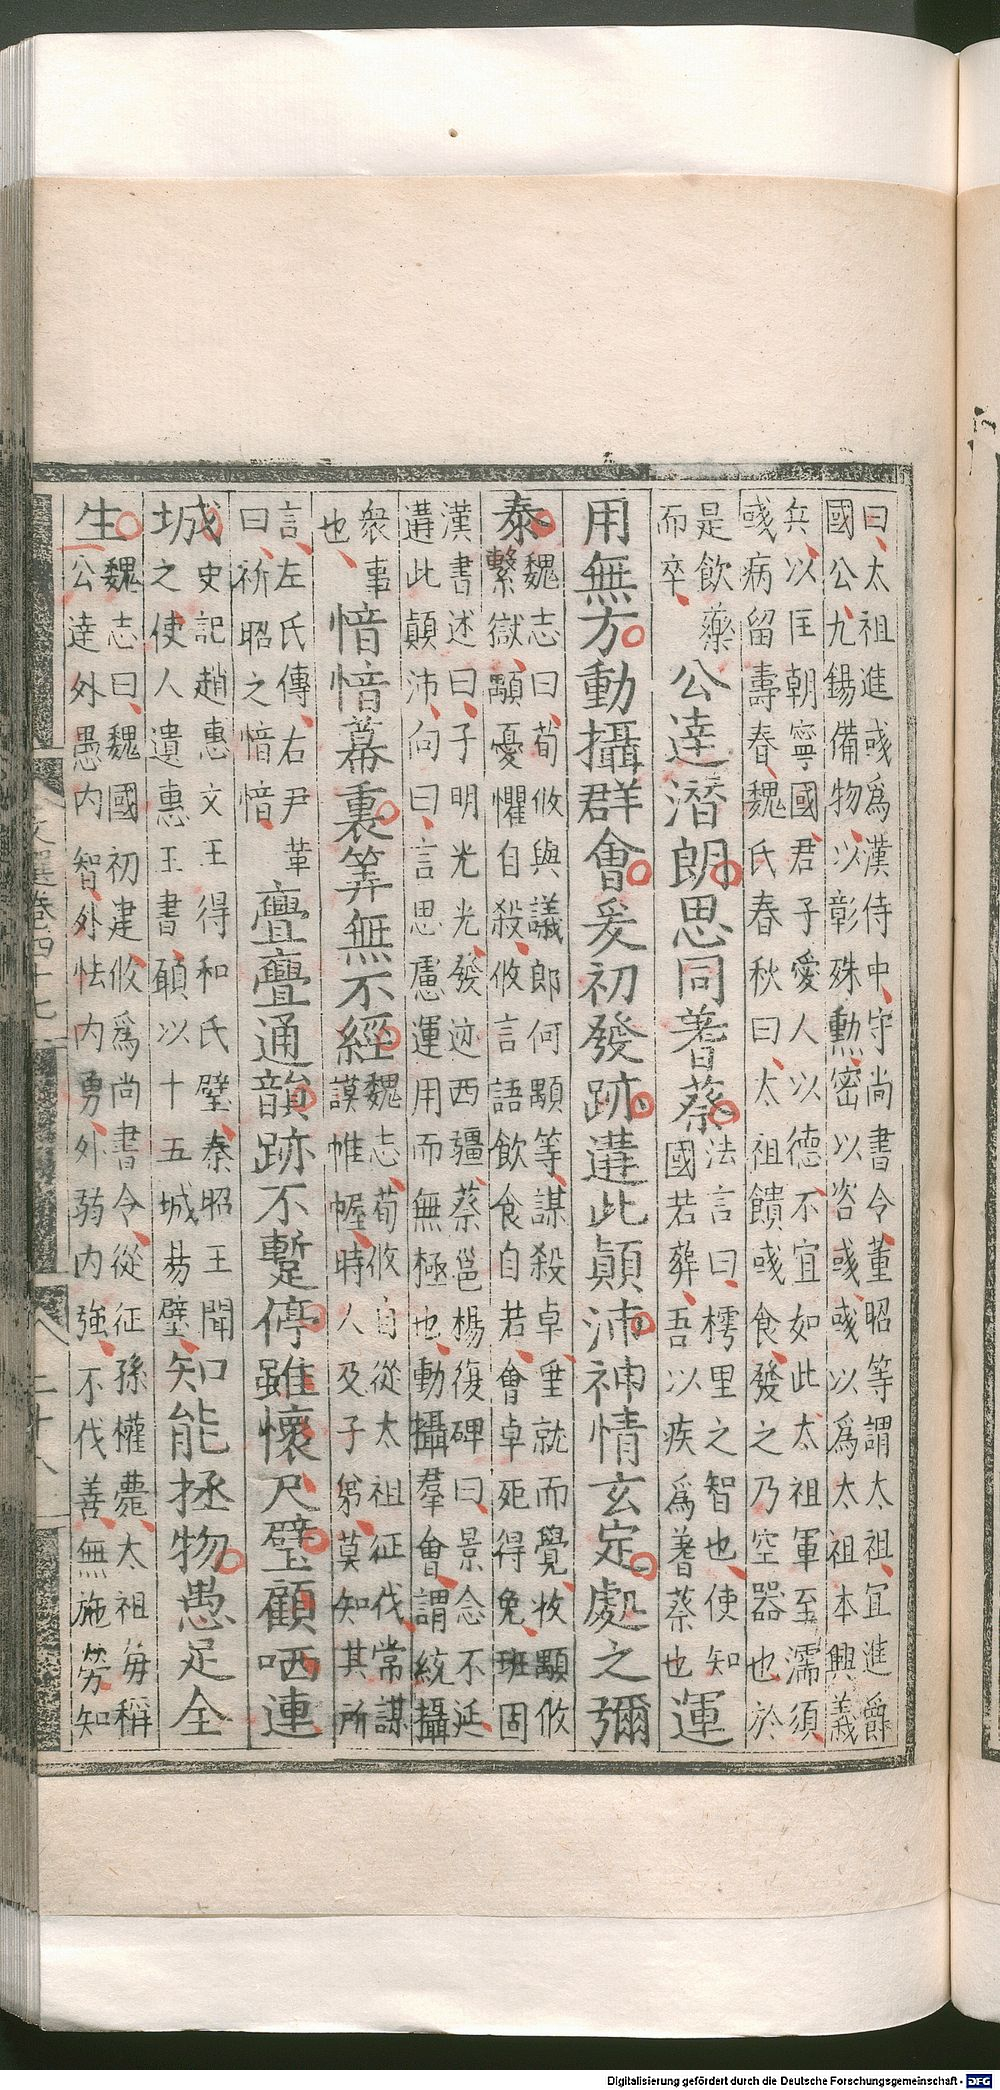 曰太祖進彧爲漢侍中守尚書令董昭等謂太祖冝進爵
國公九錫備物以彰殊勳密以咨彧彧以爲太祖本興義
兵以匡朝寧國君子愛人以德不宜如此太祖軍至濡須
彧病留壽春魏氏春秋曰太祖饋彧食發之乃空器也於
是飲藥
而卒
公達潛朗思同蓍蔡
法言曰樗里之智也使知
國若葬吾以疾爲蓍蔡也
運
用無方動攝群會爰初發跡遘此顛沛神情玄定處之彌
泰
魏志曰荀攸與議郎何顒等謀殺卓垂就而覺收顒攸
繫獄顒憂懼自殺攸言語飲食自若會卓死得免班固
漢書述曰子明光光發迹西疆蔡邕楊復碑曰景念不延
遘此顛沛向曰言思慮運用而無極也動攝羣會謂統攝
衆事
也
愔愔幕裏筭無不經
魏志荀攸自從太祖征伐常謀
謨帷幄時人及子弟莫知其所
言左氏傳右尹革
曰祈昭之愔愔
亹亹通韻跡不蹔停雖懷尺璧顧哂連
城
史記趙惠文王得和氏璧秦昭王聞
之使人遺惠王書願以十五城昜璧
知能拯物愚足全
生
魏志曰魏國初建攸爲尚書令從征孫權薨太祖每稱
公達外愚内智外怯内勇外弱内強不伐善無施勞知
文選卷四十七
二十八
Digitalisierung gefördert durch die Deutsche Forschungsgemeinschaft - DFG